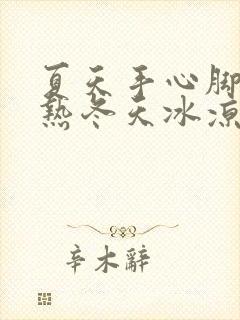 夏天手心脚
热冬天冰凉
辛木辭